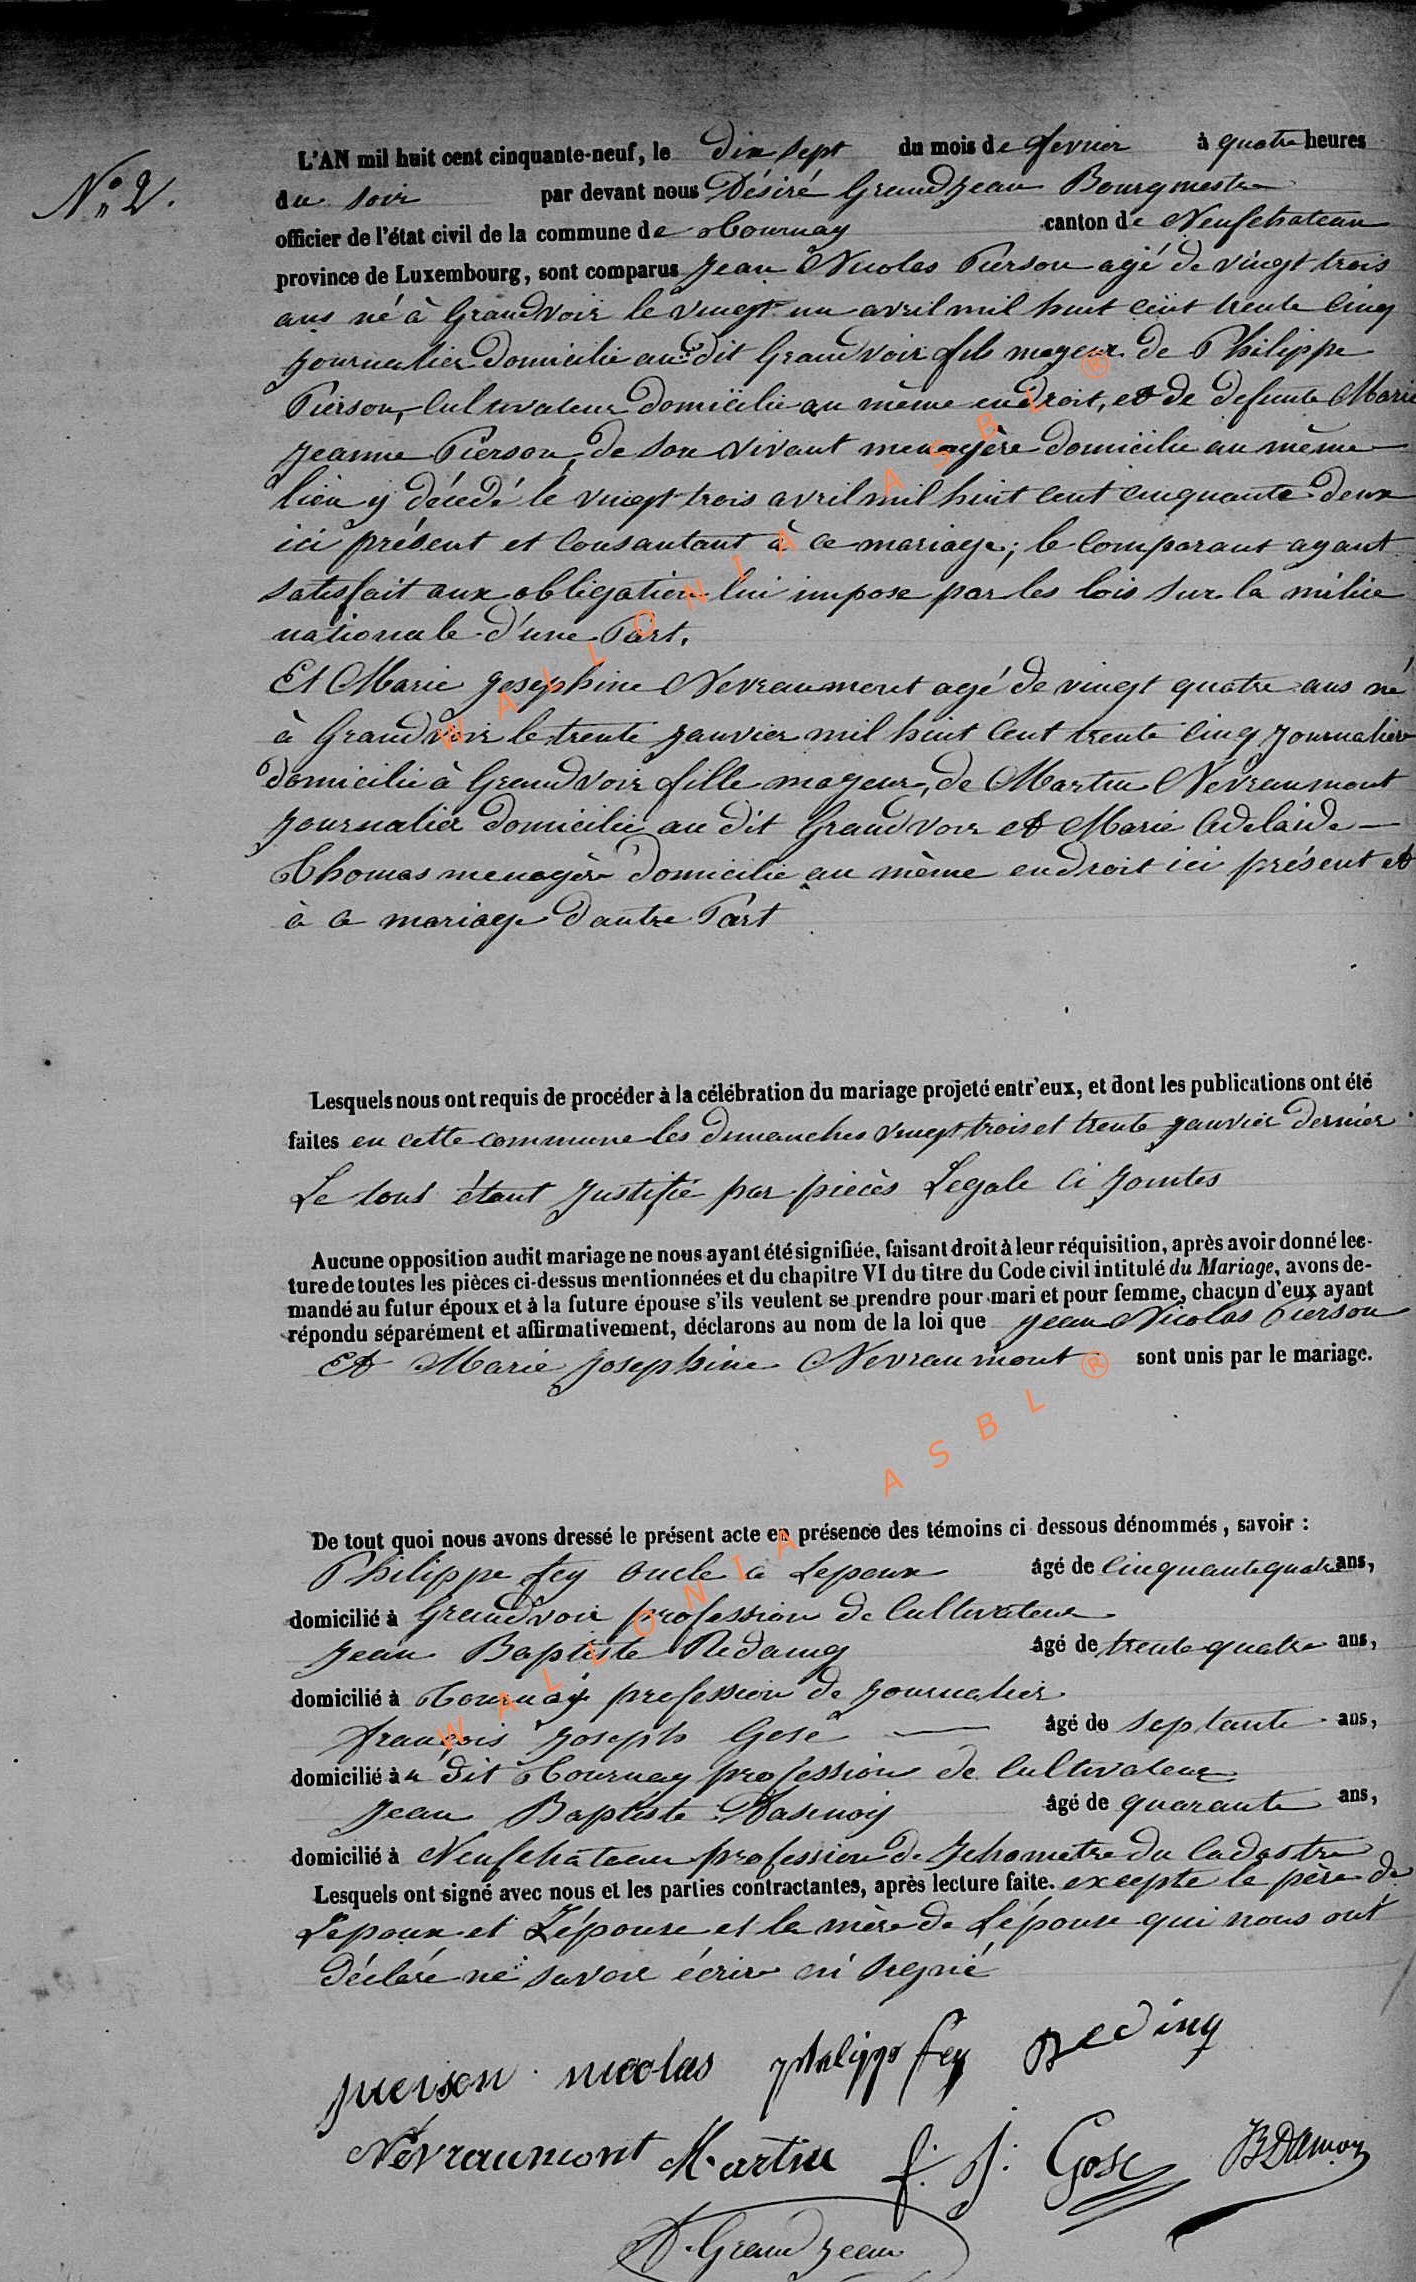 N° 2.
L'AN mil huit cent cinquante-neuf, le dix sept du mois de fevrier à quatre heures
du soir par devant nous Désiré Grandjean Bourgmestre
officier de l'état civil de la commune de Tournay canton de Neufchateau
province de Luxembourg, sont comparus Jean Nicolas Pierson agé de vingt trois
ans né à Grandvoir le vingt un avril mil huit cent trente cinq
journalier domicilié au dit Grandvoir fils mageur de Philippe
Pierson, Cultivateur domicilié au même endroit, et de defunte Marie
Jeanne Pierson, de son vivant menagère domicilié au même
lieu y décédé le vingt trois avril mil huit cent cinquante deux
ici présent et consantant à ce mariage; le comparant ayant
satisfait aux obligation lui impose par les lois sur la milice
nationale d'une Part.
Et Marie Josephine Nevraumont agé de vingt quatre ans né
à Grandvoir le trente janvier mil huit cent trente cinq journalière
domicilié à Grandvoir fille mageur, de Martin Nevraumont
journalier domicilié au dit Grandvoir et Marie Adelaide
Thomas menagère domicilié au même endroit ici présent et
à ce mariage d'autre Part
Lesquels nous ont requis de procéder à la célébration du mariage projeté entr'eux, et dont les publications ont été
faites en cette commune les dimanches vingt trois et trente janvier dernier
Le tout étant justifié par pièces Legale ci jointes
Aucune opposition audit mariage ne nous ayant été signifiée, faisant droit à leur réquisition, après avoir donné lec-
ture de toutes les pièces ci-dessus mentionnées et du chapitre VI du titre du Code civil intitulé du Mariage, avons de-
mandé au futur époux et à la future épouse s'ils veulent se prendre pour mari et pour femme, chacun d'eux ayant
répondu séparément et affirmativement, déclarons au nom de la loi que Jean Nicolas Pierson
Et Marie Josephine Nevraumont sont unis par le mariage.
De tout quoi nous avons dressé le présent acte en présence des témoins ci dessous dénommés, savoir :
Philippe Fey oncle a Lepoux âgé de cinquante quatre ans,
domicilié à Grandvoir profession de Cultivateur
Jean Baptiste Redaing âgé de trente quatre ans,
domicilié à Tournay profession de journalier
françois Joseph Gose âgé de septante ans,
domicilié à u dit Tournay profession de Cultivateur
Jean Baptiste âgé de quarante ans,
domicilié à Neufchâteau profession de Jehometre du Cadastre
Lesquels ont signé avec nous et les parties contractantes, après lecture faite. excepte le père de
Lepoux et Lépouse et la mère de Lépouse qui nous ont
déclaré ne savoir écrire ni signé
pierson nicolas philippe fey Reding
Névraumont Martin f. J. Gose
D. Grandjean
WALLONIA ASBL ®
WALLONIA ASBL ®